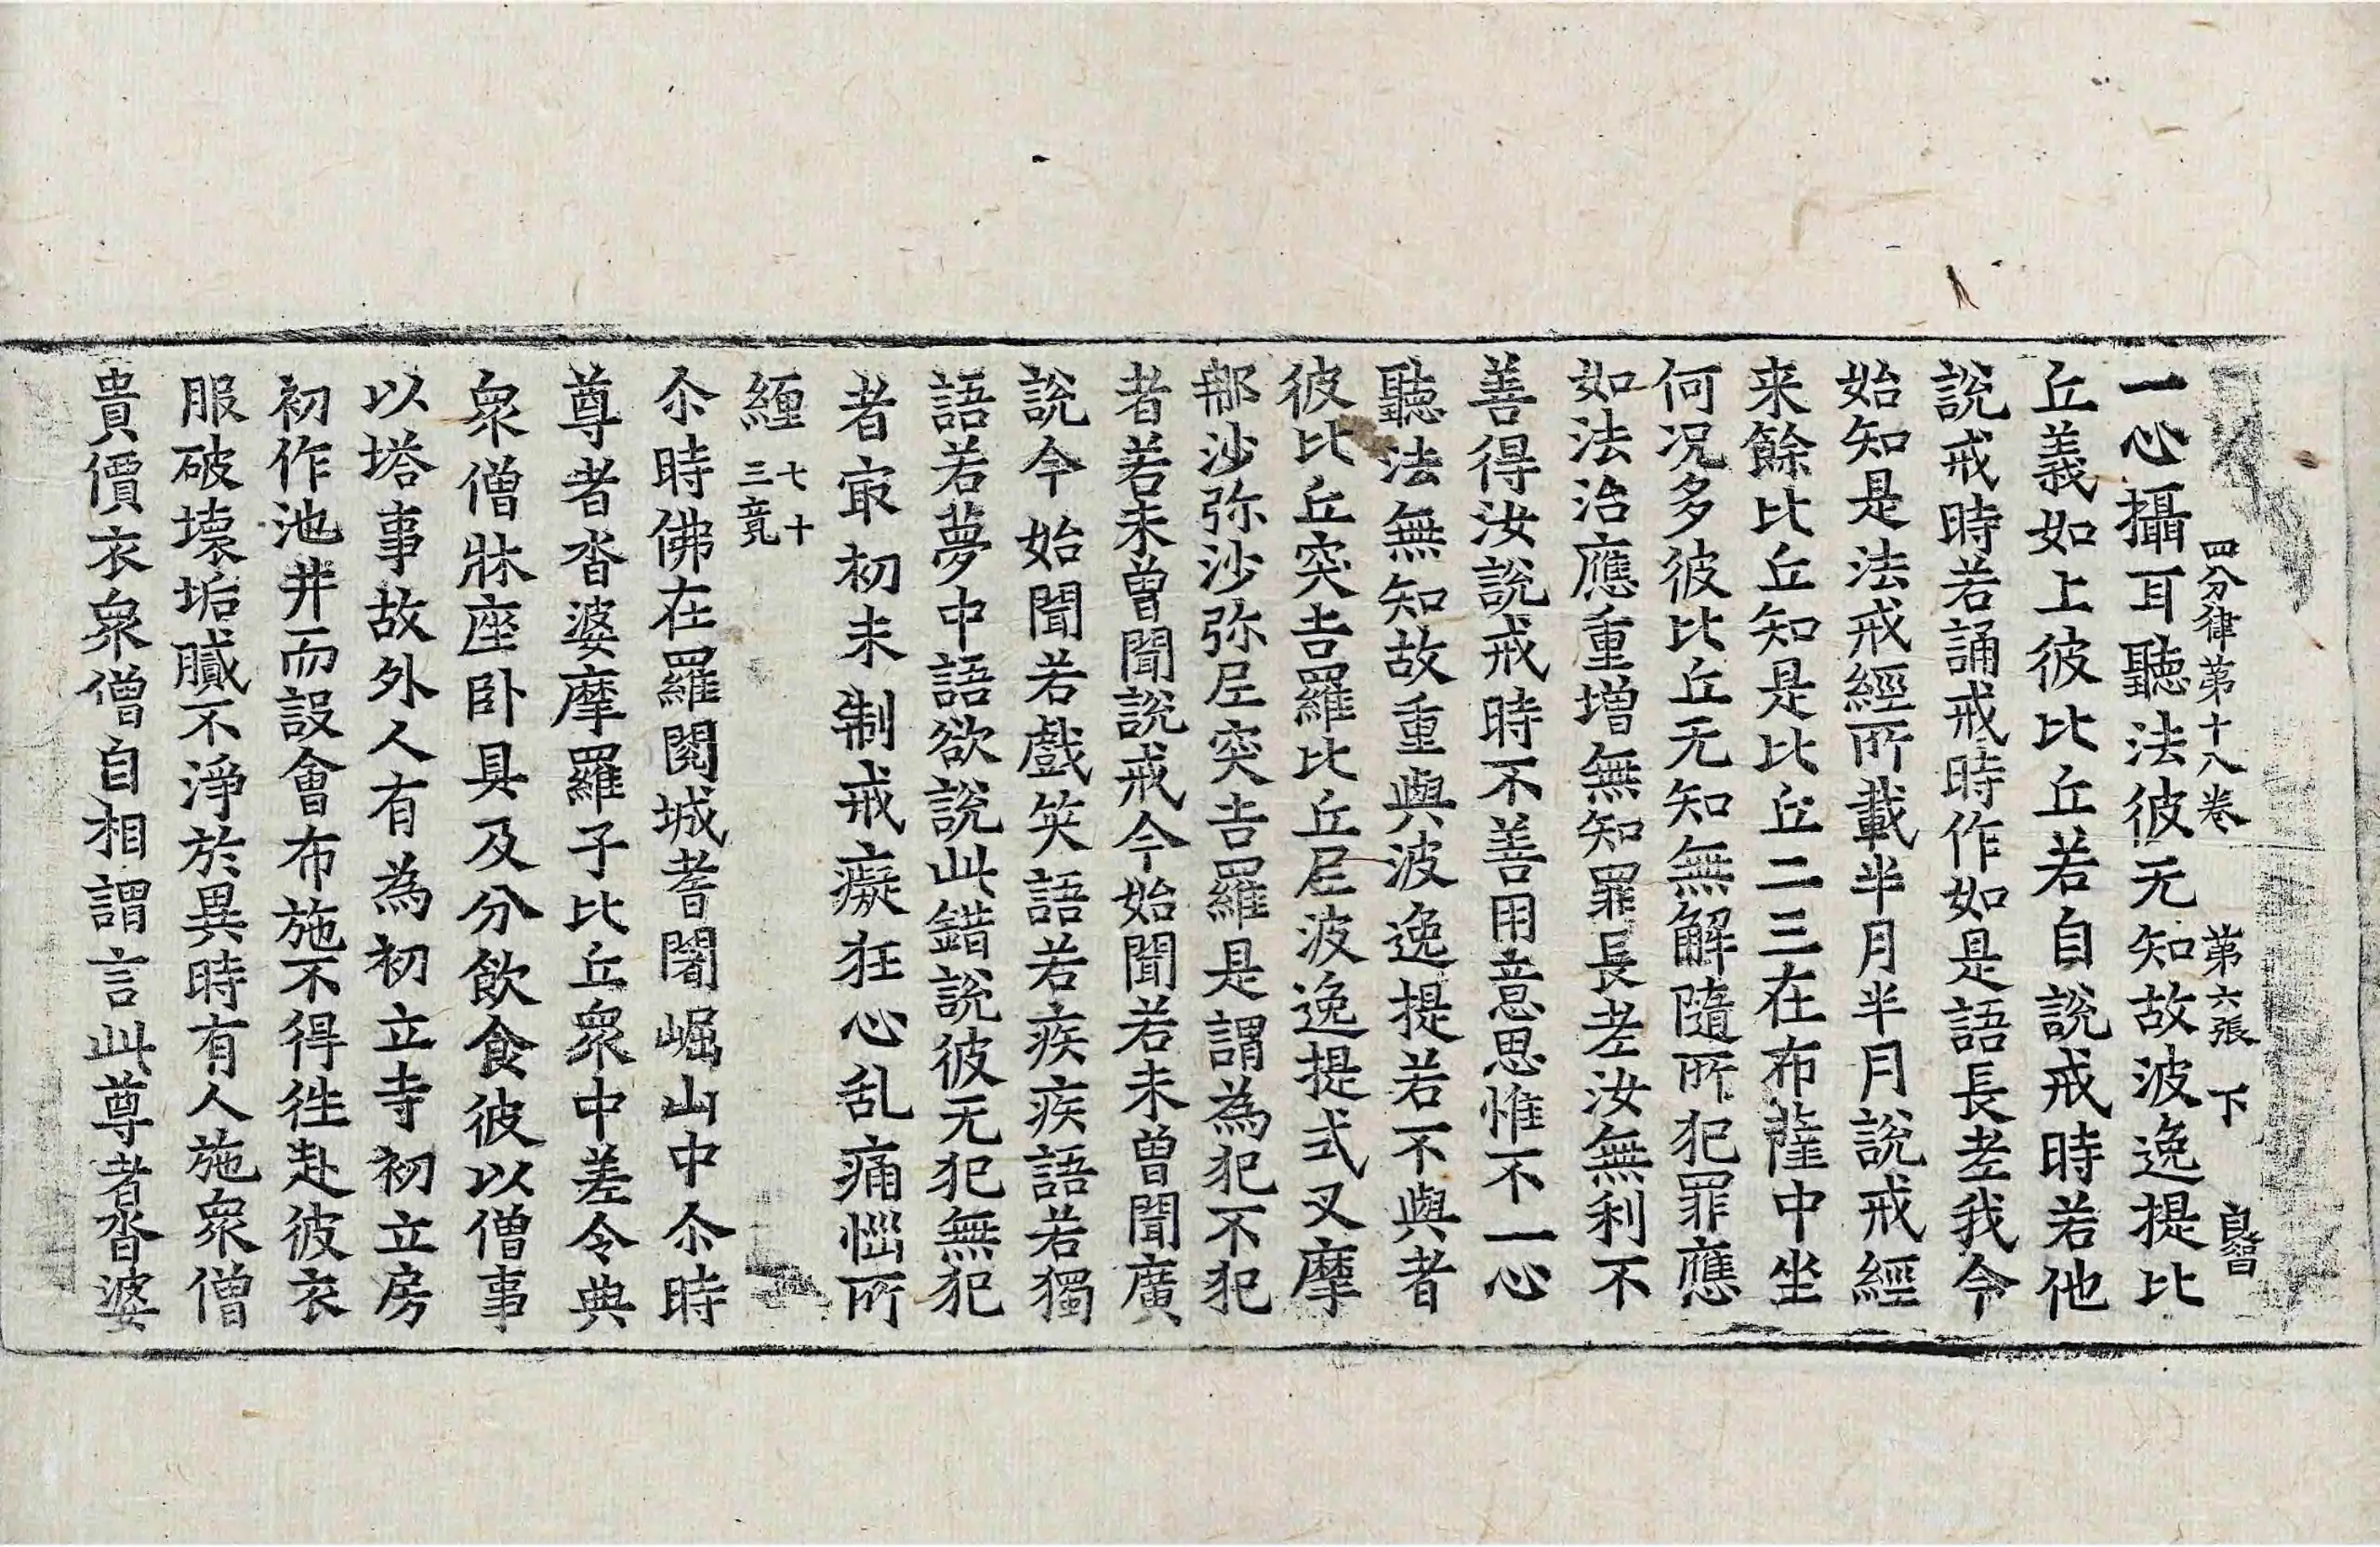 四分律第十八卷 第六張 下 自智
一心攝耳聽法彼无知故波逸提比
丘義如上彼比丘若自說戒時若他
說戒時若誦戒時作如是語長老我今
始知是法戒經所載半月半月說戒經
来餘比丘知是比丘二三在布薩中坐
何况多彼比丘无知無解隨所犯罪應
如法治應重増無知罪長老汝無利不
善得汝說戒時不善用意思惟不一心
聽法無知故重與波逸提若不與者
彼比丘突吉羅比丘尼波逸提式叉摩
那沙弥沙弥尼突吉羅是謂為犯不犯
者若未曾聞說戒今始聞若未曾聞廣
說今始聞若戲笑語若疾疾語若獨
語若夢中語欲說此錯說彼无犯無犯
者冣初未制戒癡狂心乱痛惱所
纏 七十三竟
尒時佛在羅閱城耆闍崛山中尒時
尊者沓婆摩羅子比丘衆中差令典
衆僧牀座卧具及分飲食彼以僧事
以塔事故外人有為初立寺初立房
初作池井而設會布施不得徃赴彼衣
服破壞垢膩不淨於異時有人施衆僧
貴價衣衆僧自相謂言此尊者沓婆